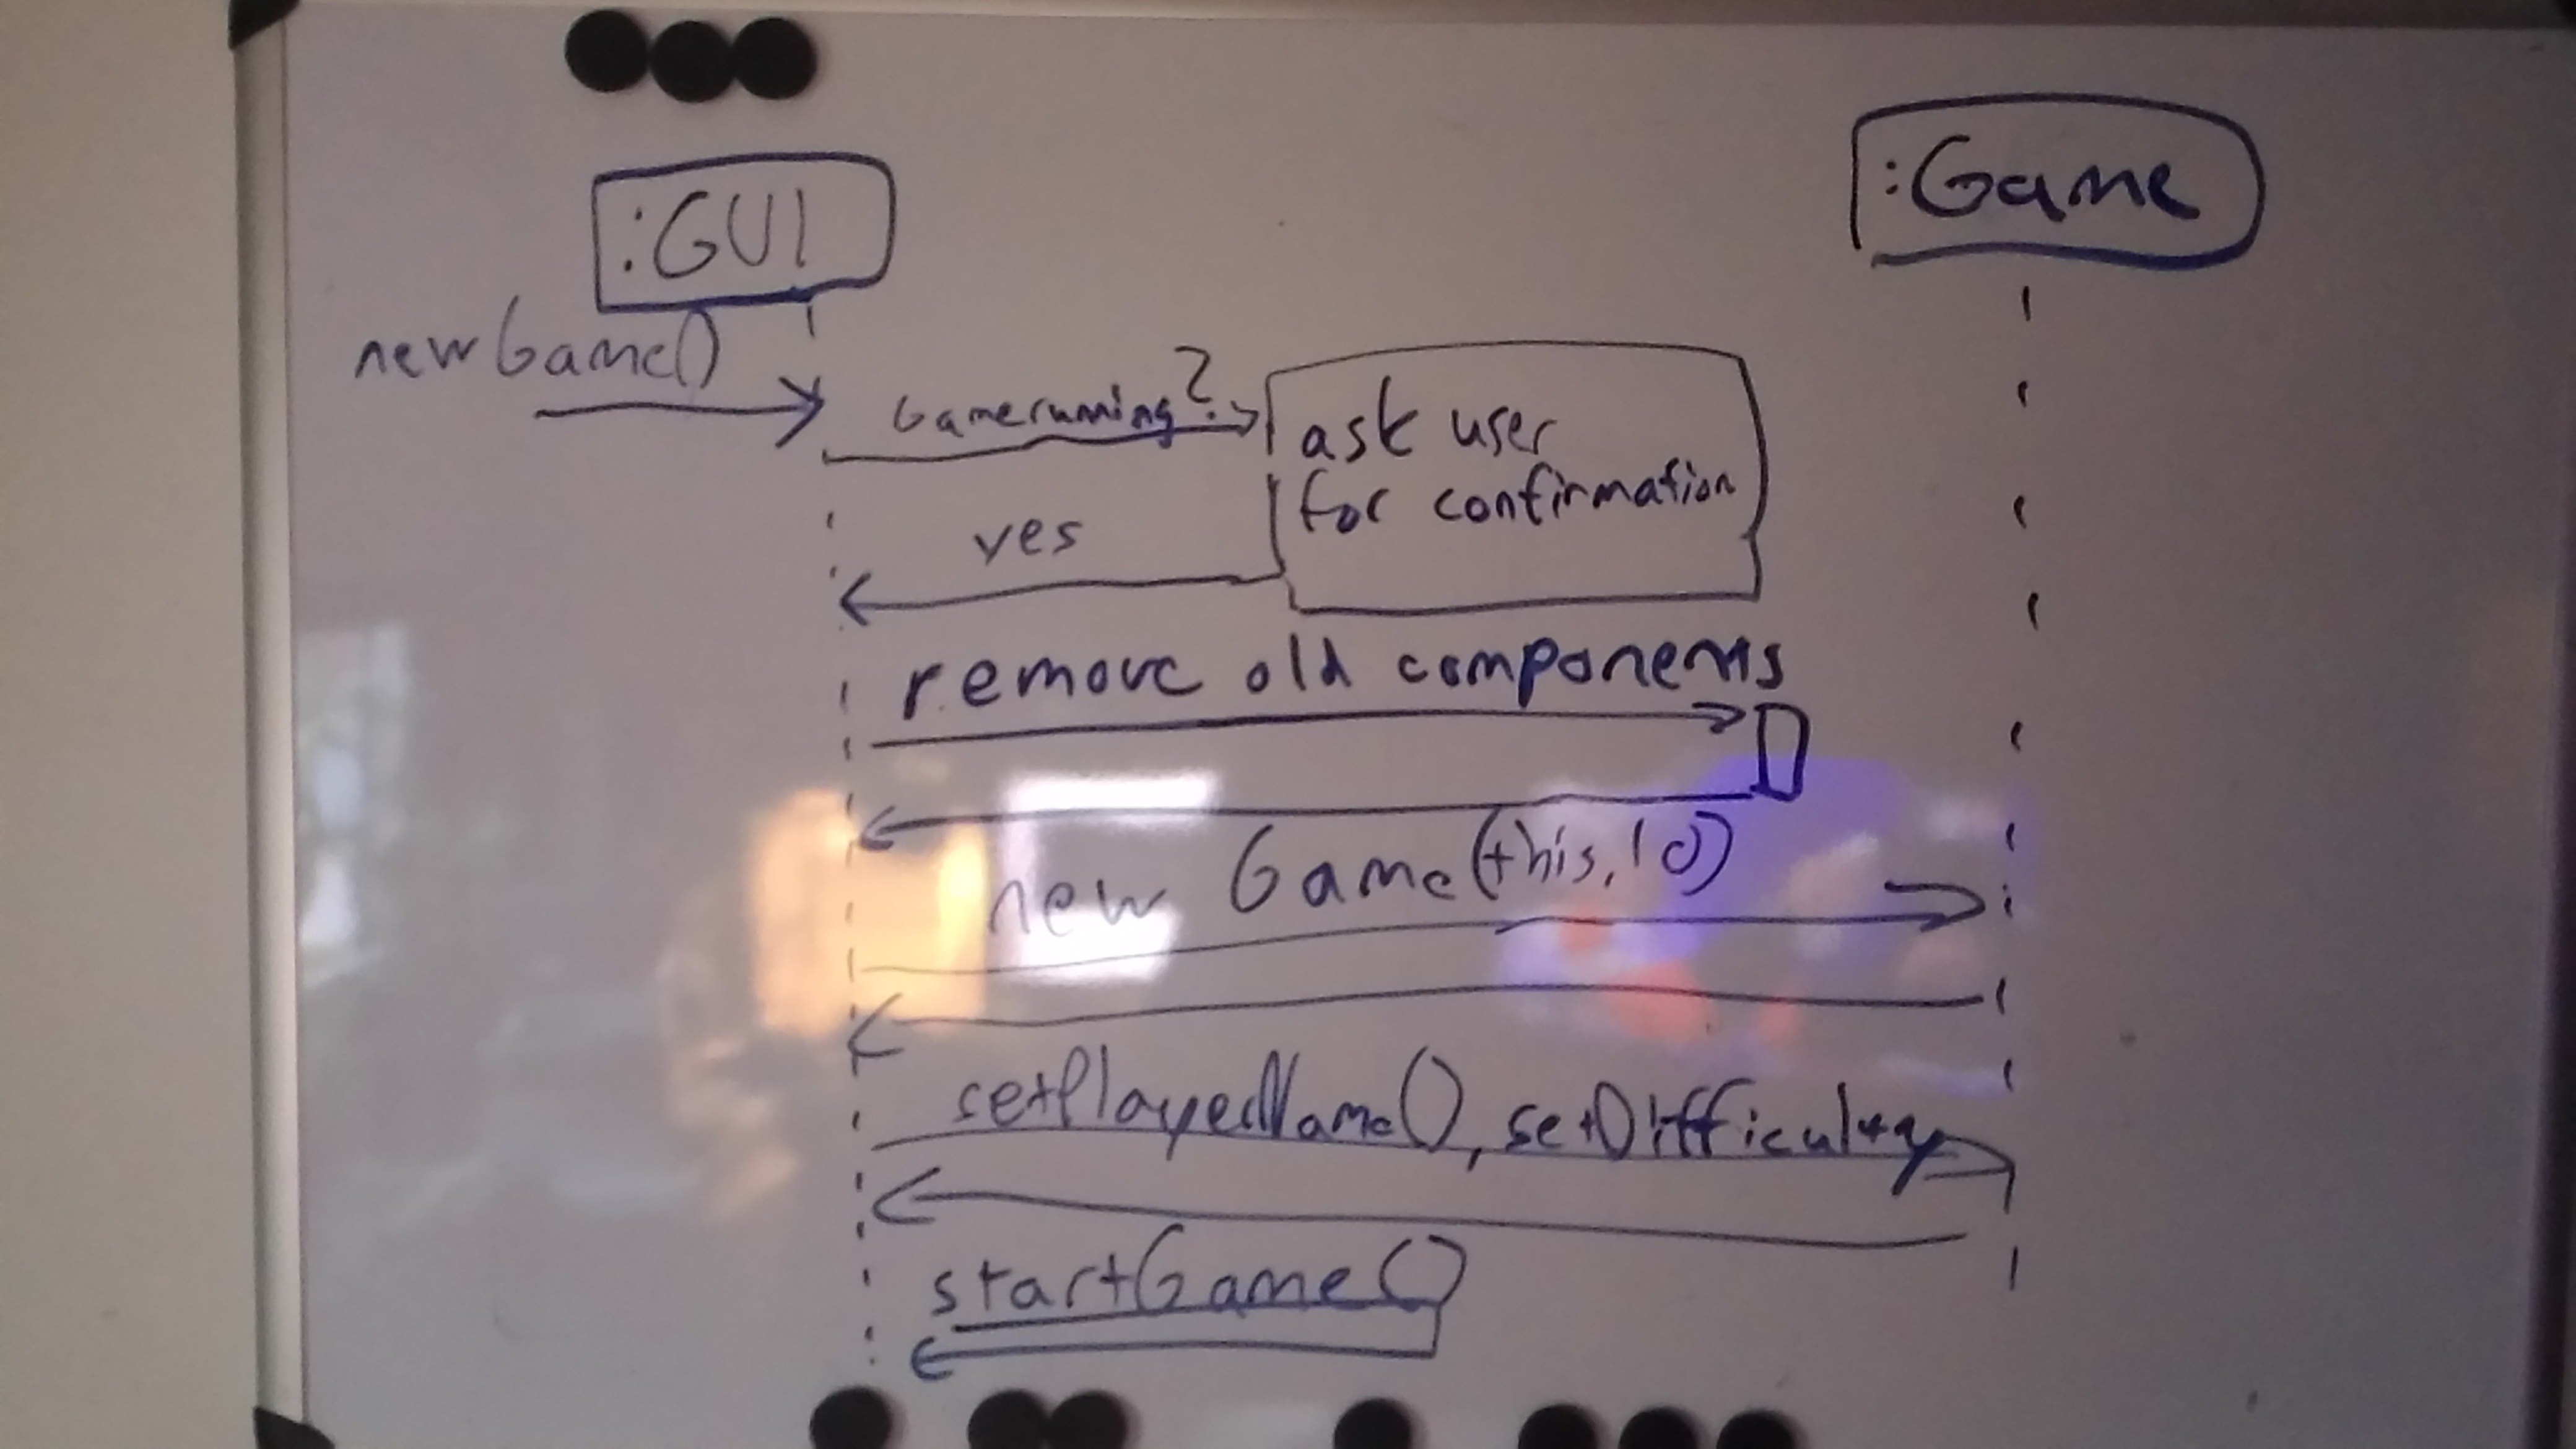 :GUI
:Game
newGame()
Gamerunning?
ask user
for confirmation
yes
remove old components
new Game(this, 10)
setPlayerName(), setDifficulty
startGame()